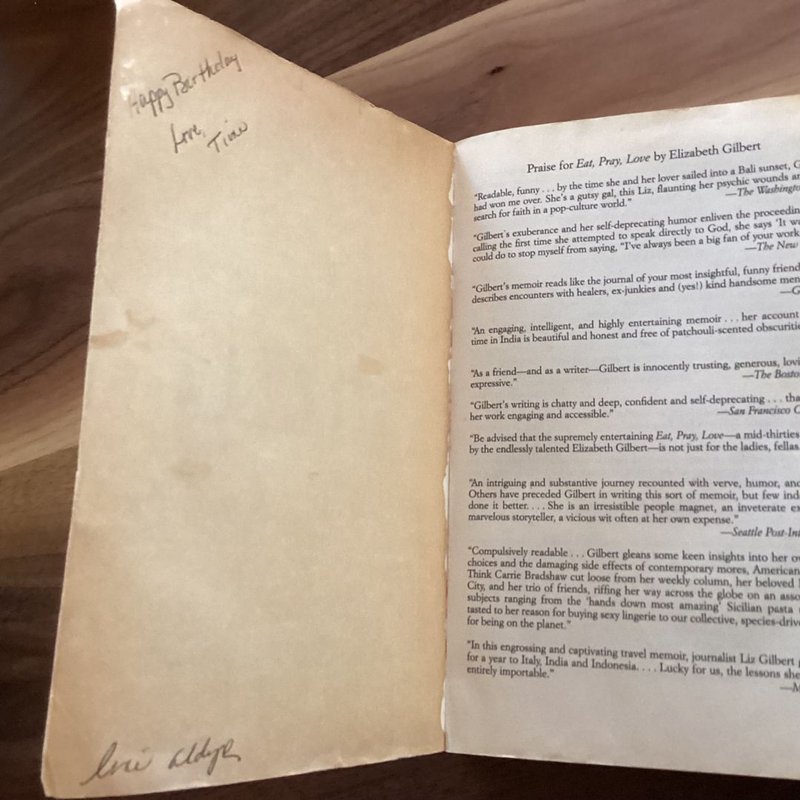 Happy Birthday
Love,
Tino
Praise for Eat, Pray, Love by Elizabeth Gilbert
"Readable, funny . . . by the time she and her lover sailed into a Bali sunset, G
had won me over. She's a gutsy gal, this Liz, flaunting her psychic wounds an
search for faith in a pop-culture world."
—The Washingto
"Gilbert's exuberance and her self-deprecating humor enliven the proceedin
calling the first time she attempted to speak directly to God, she says 'It w
could do to stop myself from saying, "I've always been a big fan of your work
—The New
"Gilbert's memoir reads like the journal of your most insightful, funny friend
describes encounters with healers, ex-junkies and (yes!) kind handsome men
—G
"An engaging, intelligent, and highly entertaining memoir . . . her account
time in India is beautiful and honest and free of patchouli-scented obscuritie
"As a friend—and as a writer—Gilbert is innocently trusting, generous, lovi
expressive."
—The Bosto
"Gilbert's writing is chatty and deep, confident and self-deprecating . . . tha
her work engaging and accessible."
—San Francisco C
"Be advised that the supremely entertaining Eat, Pray, Love—a mid-thirties
by the endlessly talented Elizabeth Gilbert—is not just for the ladies, fellas
"An intriguing and substantive journey recounted with verve, humor, and
Others have preceded Gilbert in writing this sort of memoir, but few ind
done it better. . . . She is an irresistible people magnet, an inveterate ex
marvelous storyteller, a vicious wit often at her own expense."
—Seattle Post-Int
"Compulsively readable . . . Gilbert gleans some keen insights into her ow
choices and the damaging side effects of contemporary mores, American
Think Carrie Bradshaw cut loose from her weekly column, her beloved
City, and her trio of friends, riffing her way across the globe on an asso
subjects ranging from the 'hands down most amazing' Sicilian pasta
tasted to her reason for buying sexy lingerie to our collective, species-drive
for being on the planet."
"In this engrossing and captivating travel memoir, journalist Liz Gilbert
for a year to Italy, India and Indonesia. . . . Lucky for us, the lessons she
entirely importable."
—M